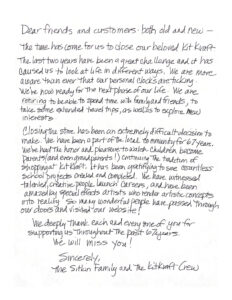 Dear friends and customers - both old and new -
The time has come for us to close our beloved Kit Kraft
The last two years have been a great challenge and it has
caused us to look at life in different ways. We are more
aware than ever that our personal clocks are ticking
We're now ready for the next phase of our life. We are
retiring to be able to spend time with family and friends, to
take some extended travel trips, as well as to explore new
interests
Closing the store has been an extremely difficult decision to
make. We have been a part of the local community for 67 years.
We've had the honor and pleasure to watch children become
parents (and even grandparents!) continuing the tradition of
shopping at Kit Kraft. It has been gratifying to see countless
school projects created and completed. We have witnessed
talented, creative people launch careers, and have been
amazed by special effects artists who render artistic concepts
into reality. So many wonderful people have passed through
our doors and visited our website!
We deeply thank each and every one of you for
supporting us throughout the past 67 years.
We will miss you!
Sincerely,
The Sitkin Family and The Kit Kraft Crew